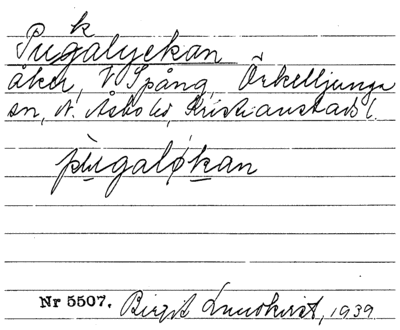 k
Pugalyckan
åker, V. Spång, Örkelljunga
sn, N. Åsbo hd, Kristianstads l.
pùgaløkan
Nr 5507. Birgit Lundkvist, 1939